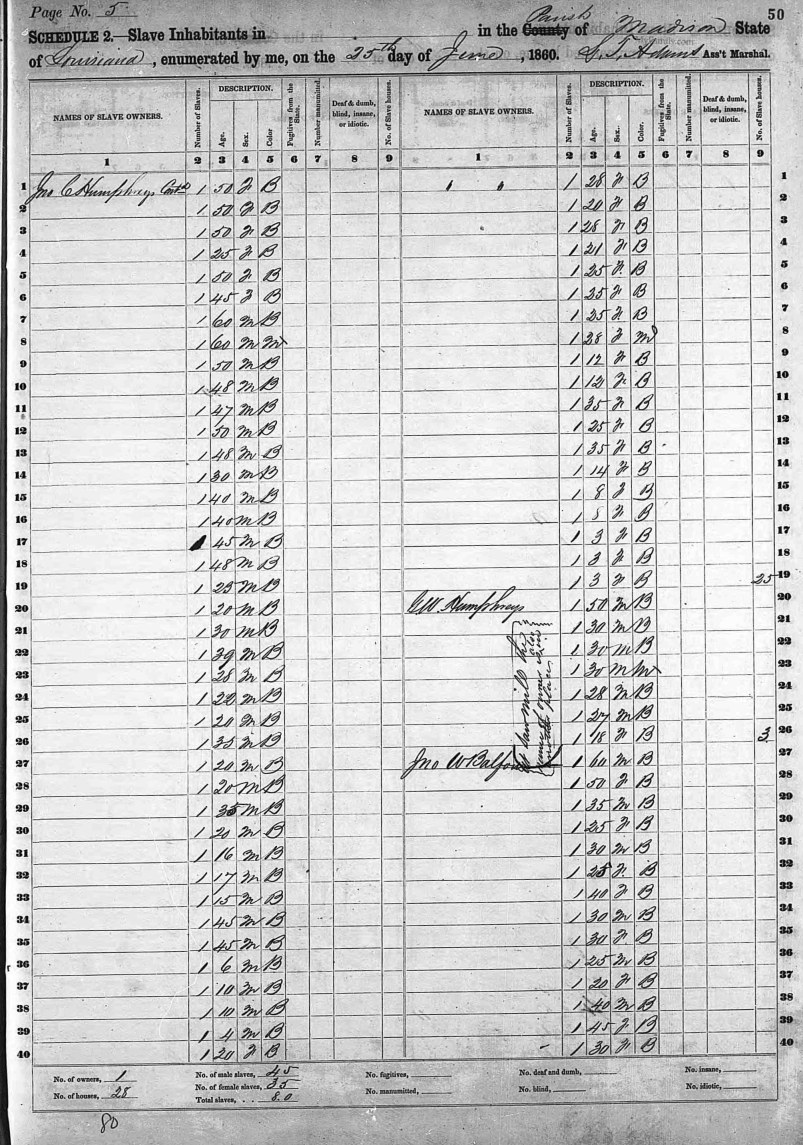 Page No. 5
50
SCHEDULE 2.—Slave Inhabitants in in the County Parish of Madison State
of Louisiana, enumerated by me, on the 25th day of June, 1860. G. T. Adams Ass't Marshal.
NAMES OF SLAVE OWNERS. Number of Slaves. DESCRIPTION. Age. Sex. Color Fugitives from the State. Number manumitted. Deaf & dumb, blind, insane, or idiotic. No. of Slave houses.
NAMES OF SLAVE OWNERS. Number of Slaves. DESCRIPTION. Age. Sex. Color. Fugitives from the State. Number manumitted. Deaf & dumb, blind, insane, or idiotic. No. of Slave houses.
1 2 3 4 5 6 7 8 9 1 2 3 4 5 6 7 8 9
1 Jno C Humphreys Contd 1 50 F B " " 1 28 F B 1
2 1 50 F B 1 20 F B 2
3 1 50 F B 1 28 F B 3
4 1 25 F B 1 21 F B 4
5 1 50 F B 1 25 F B 5
6 1 45 F B 1 25 F B 6
7 1 60 M B 1 25 F B 7
8 1 60 M M 1 28 F M 8
9 1 50 M B 1 12 F B 9
10 1 48 M B 1 12 F B 10
11 1 47 M B 1 35 F B 11
12 1 50 M B 1 25 F B 12
13 1 48 M B 1 35 F B 13
14 1 30 M B 1 14 F B 14
15 1 40 M B 1 8 F B 15
16 1 40 M B 1 8 F B 16
17 1 45 M B 1 3 F B 17
18 1 48 M B 1 3 F B 18
19 1 23 M B 1 3 F B 25 19
20 1 20 M B C W Humphreys 1 50 M B 20
21 1 30 M B 1 30 M B 21
22 1 39 M B 1 30 M B 22
23 1 28 M B 1 30 M M 23
24 1 22 M B 1 28 M B 24
25 1 20 M B 1 27 M B 25
26 1 35 M B 1 18 F B 3 26
27 1 20 M B Jno W Balfour 1 60 M B 27
saw mill
28 1 20 M B 1 50 F B 28
29 1 35 M B 1 35 M B 29
30 1 20 M B 1 25 F B 30
31 1 16 M B 1 30 M B 31
32 1 17 M B 1 25 F B 32
33 1 15 M B 1 40 F B 33
34 1 45 M B 1 30 M B 34
35 1 45 M B 1 30 F B 35
36 1 6 M B 1 25 M B 36
37 1 10 M B 1 20 F B 37
38 1 10 M B 1 40 M B 38
39 1 4 M B 1 45 F B 39
40 1 20 F B 1 30 F B 40
No. of owners, 1 No. of male slaves, 45 No. fugitives, No. deaf and dumb, No. insane,
No. of houses, 28 No. of female slaves, 35 No. manumitted, No. blind, No. idiotic,
Total slaves, 80
80